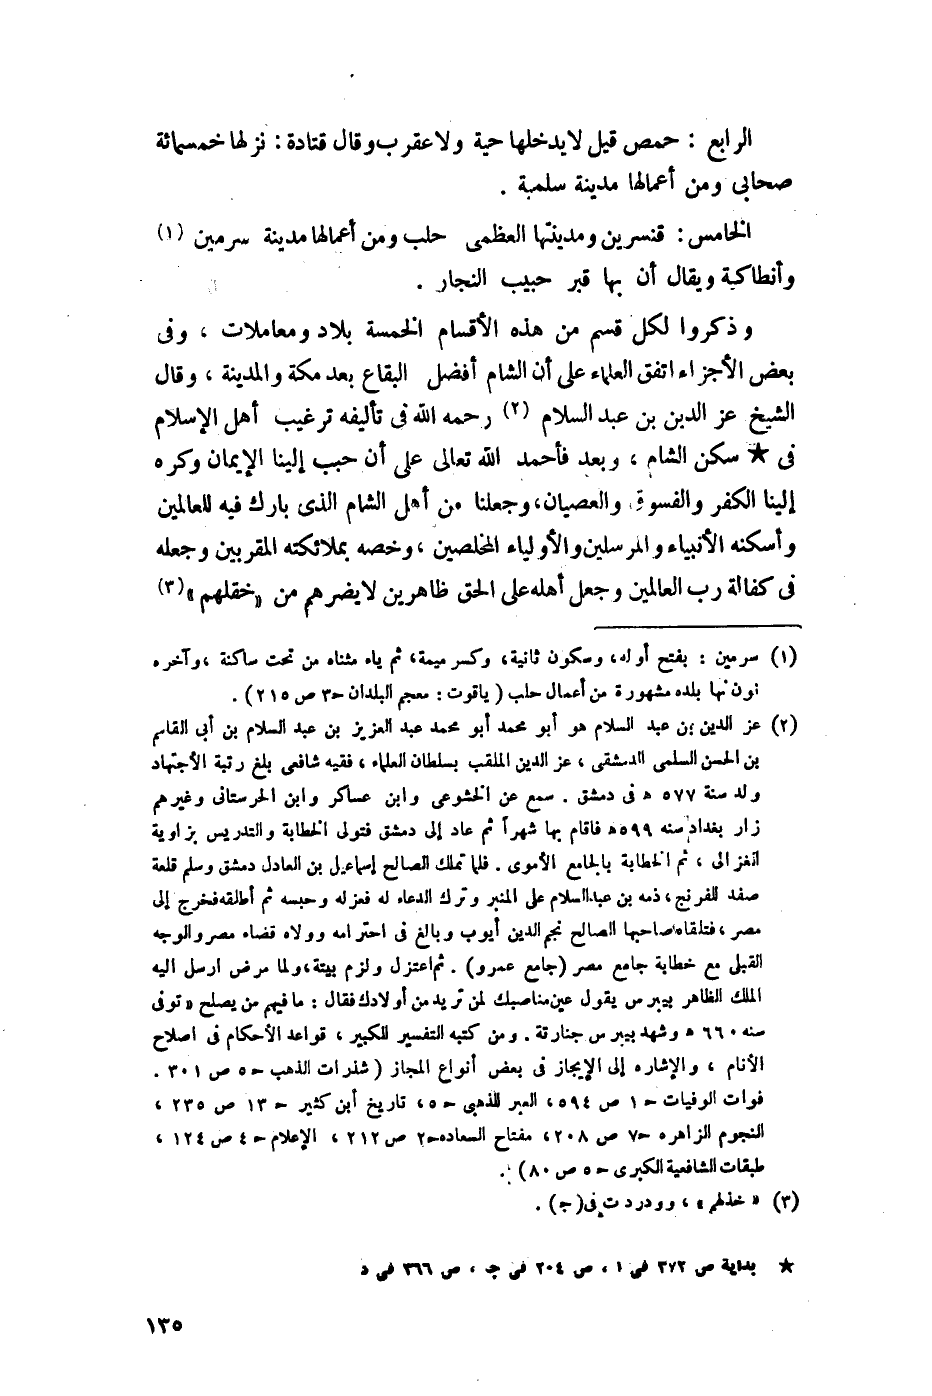 الرابع : حمص قيل لا يدخلها حية ولا عقرب وقال قتادة : نزلها خمسمائة
صحابى ومن أعمالها مدينة سلمية .
الخامس : قنسرين ومدينتها العظمى حلب ومن أعمالها مدينة سرمين (١)
وأنطاكية ويقال أن بها قبر حبيب النجار .
وذكروا لكل قسم من هذه الأقسام الخمسة بلاد ومعاملات ، وفى
بعض الأجزاء اتفق العلماء على أن الشام أفضل البقاع بعد مكة والمدينة ، وقال
الشيخ عز الدين بن عبد السلام (٢) رحمه الله فى تأليفه ترغيب أهل الإسلام
فى ★ سكن الشام ، وبعد فأحمد الله تعالى على أن حبب إلينا الإيمان وكره
إلينا الكفر والفسوق والعصيان، وجعلنا من أهل الشام الذى بارك فيه للعالمين
وأسكنه الأنبياء والمرسلين والأولياء المخلصين ، وخصه بملائكته المقربين وجعله
فى كفالة رب العالمين وجعل أهله على الحق ظاهرين لا يضرهم من « خقلهم » (٣)
(١) سرمين : بفتح أوله، وسكون ثانية، وكسر ميمة، ثم ياء مثناه من تحت ساكنة ، وآخره
نون نها بلده مشهورة من أعمال حلب ( ياقوت : معجم البلدان ح٣ ص ٢١٥ ) .
(٢) عز الدين بن عبد السلام هو أبو محمد أبو محمد عبد العزيز بن عبد السلام بن أبى القاسم
بن الحسن السلمى الدمشقى ، عز الدين الملقب بسلطان العلماء ، فقيه شافعى بلغ رتبة الأجتهاد
ولد سنة ٥٧٧ ه فى دمشق . سمع عن الخشوعى وابن عساكر وابن الحرستانى وغيرهم
زار بغداد سنه ٥٩٩ه فاقام بها شهراً ثم عاد إلى دمشق فتولى الخطابة والتدريس بزاوية
الغزالى ، ثم الخطابة بالجامع الأموى . فلما تملك الصالح إسماعيل بن العادل دمشق وسلم قلعة
صفد للفرنج ، ذمه بن عبد السلام على المنبر وترك الدعاء له فعزله وحبسه ثم أطلقه فخرج إلى
مصر ، فتلقاه صاحبها الصالح نجم الدين أيوب وبالغ فى احترامه وولاه قضاء مصر والوجه
القبلى مع خطابة جامع مصر (جامع عمرو) . ثم اعتزل ولزم بيتة، ولما مرض ارسل اليه
الملك الظاهر بيبرس يقول عين مناصبك لمن تريد من أولادك فقال : ما فيهم من يصلح « توفى
سنه ٦٦٠ ه وشهد بيبرس جنازتة . ومن كتبه التفسير للكبير ، قواعد الأحكام فى اصلاح
الأنام ، والإشاره إلى الإيجاز فى بعض أنواع المجاز ( شذرات الذهب ح٥ ص ٣٠١ .
فوات الوفيات ح ١ ص ٥٩٤، العبر للذهبى ح٥، تاريخ أبن كثير ح ١٣ ص ٢٣٥ ،
النجوم الزاهره ح٧ ص ٢٠٨، مفتاح السعاده ح٢ ص ٢١٢ ، الإعلام ح٤ ص ١٢٤ ،
طبقات الشافعية الكبرى ح ٥ ص ٨٠) .
(٣) « خذلهم » ، ووردت فى (ج) .
★ بداية ص ٢٧٢ فى ا ، ص ٢٠٤ فى ج ، ص ٣٦٦ فى د
١٣٥